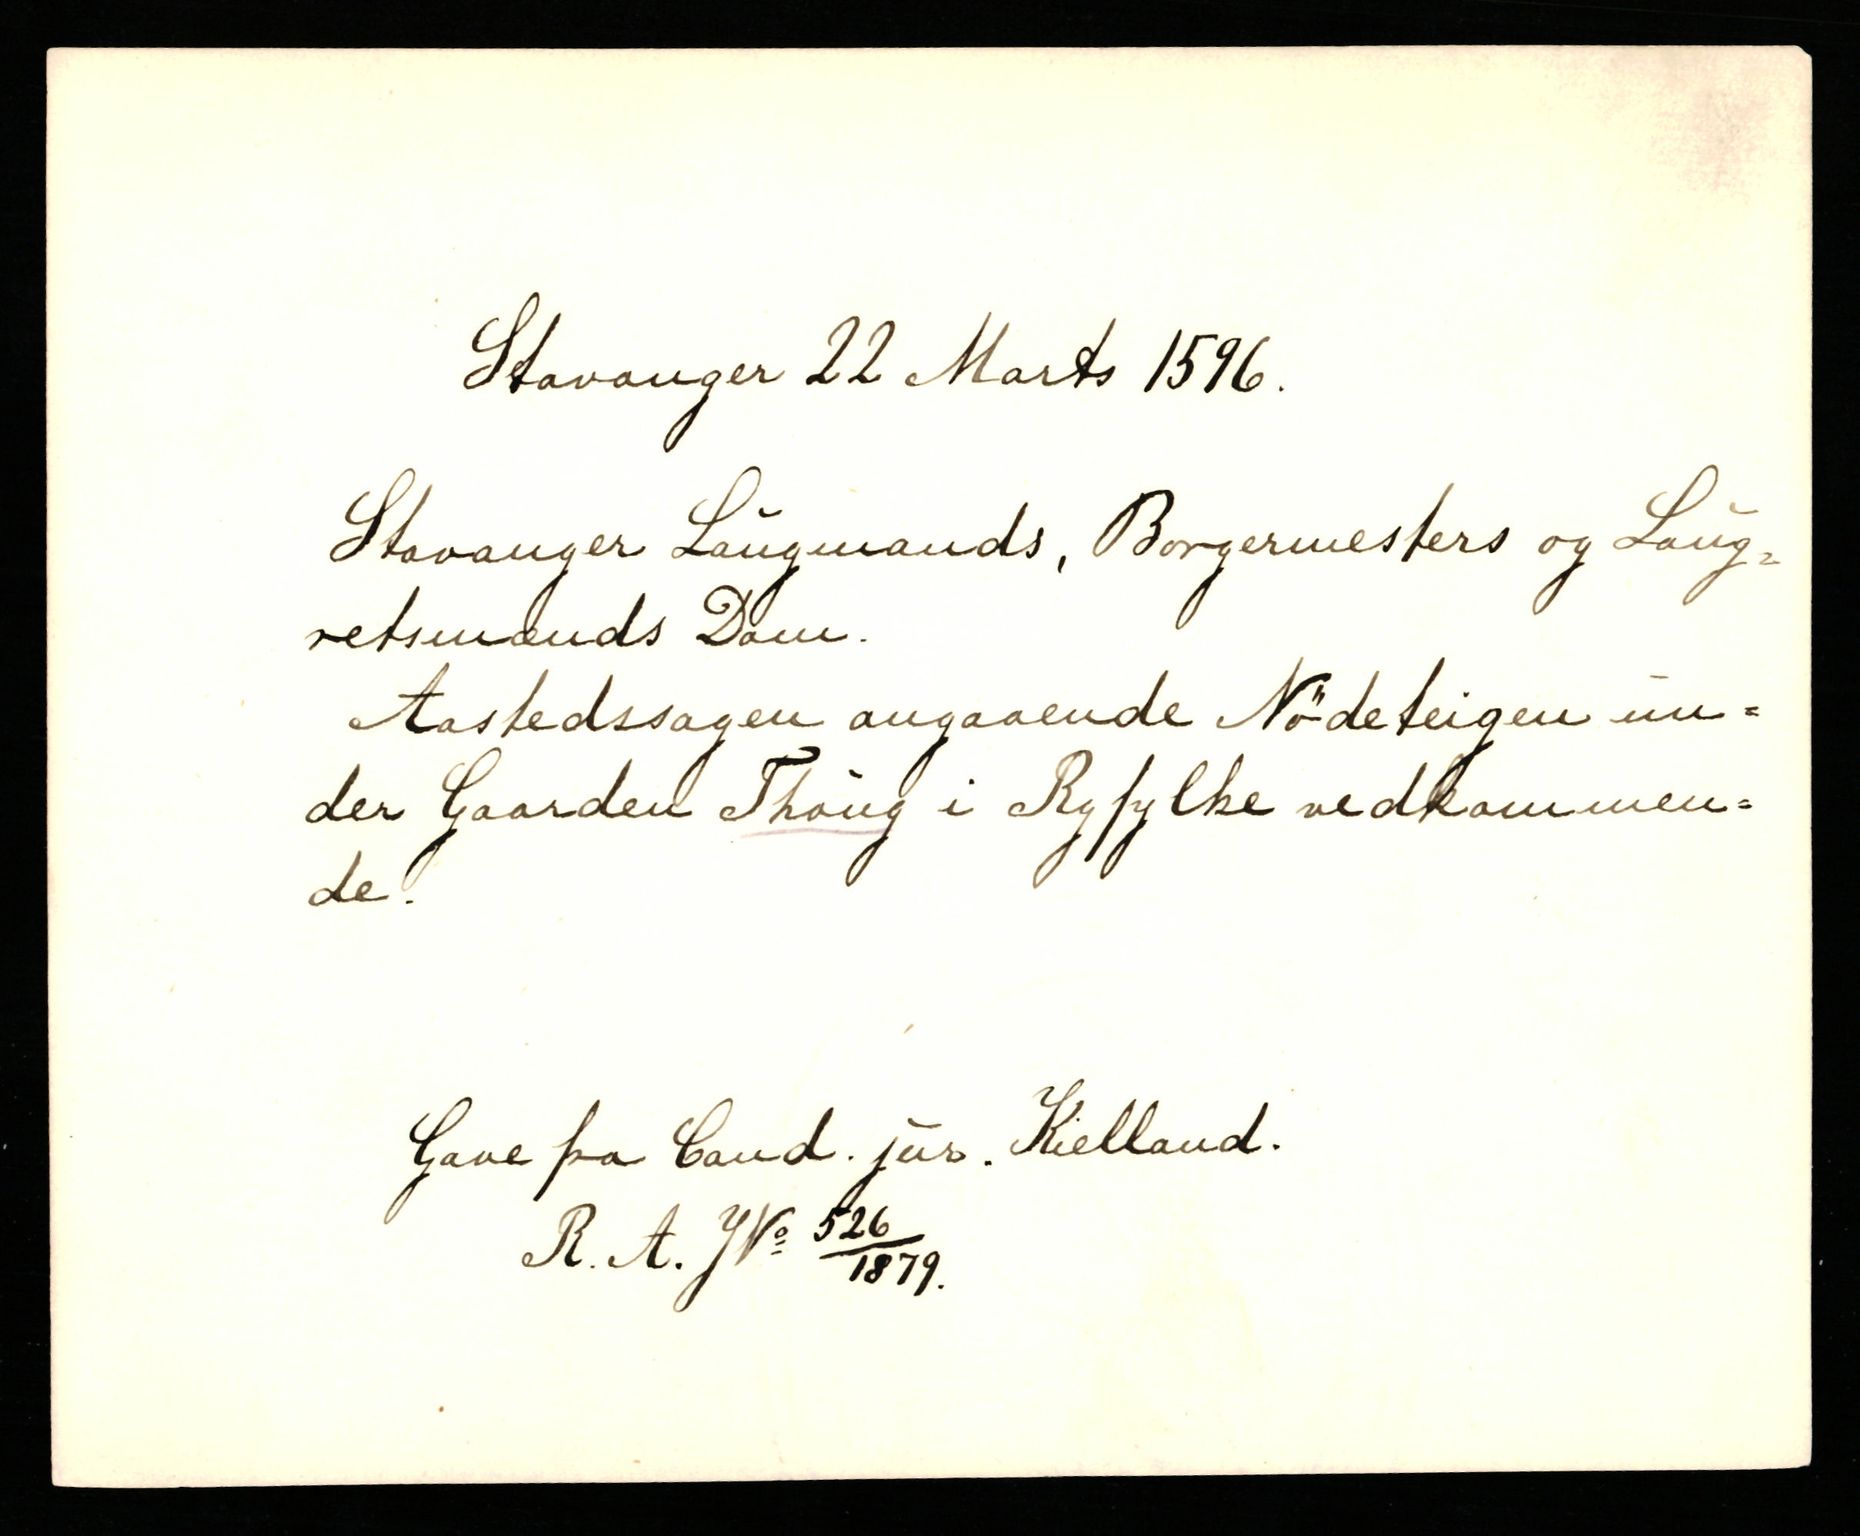 Stavanger 22 Marts 1596.
Stavanger Laugmands, Borgermesters og Laug=
retsmænds Dom.
Aastedssagen angaaende Nödeteigen un=
der Gaarden Thaug i Ryfylke vedkommen=
de.
Gave fra Cand. jur. Kielland.
R. A. JNo 526/1879.